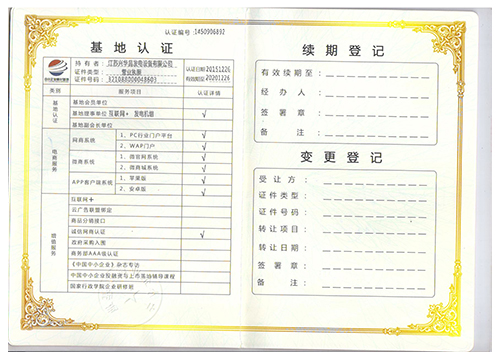 认证编号：1450906892
基地认证
持有者：江苏兴华昌发电设备有限公司
证件类型：营业执照
证件号码：
认证日期20151226
有效期限20201226
类别 服务项目 认证详情
基地认证
基地会员单位
基地理事单位 互联网+ 发电机组 √
基地副会长单位
电商服务
网商系统 1、PC行业门户平台 √
2、WAP门户 √
微商系统 1、微官网系统 √
2、微商城系统 √
APP客户端系统 1、苹果版 √
2、安卓版 √
增值服务
互联网+
云广告联盟绑定
商品分销接口
诚信网商认证 √
政府采购入围
商务部AAA级认证
《中国中小企业》杂志专访
中国中小企业投融资与上市基础辅导课程
国家行政学院企业研修班
续期登记
有效续期至：
经办人：
签署章：
备注：
变更登记
受让方：
证件类型：
证件号码：
转让项目：
转让日期：
签署章：
备注：